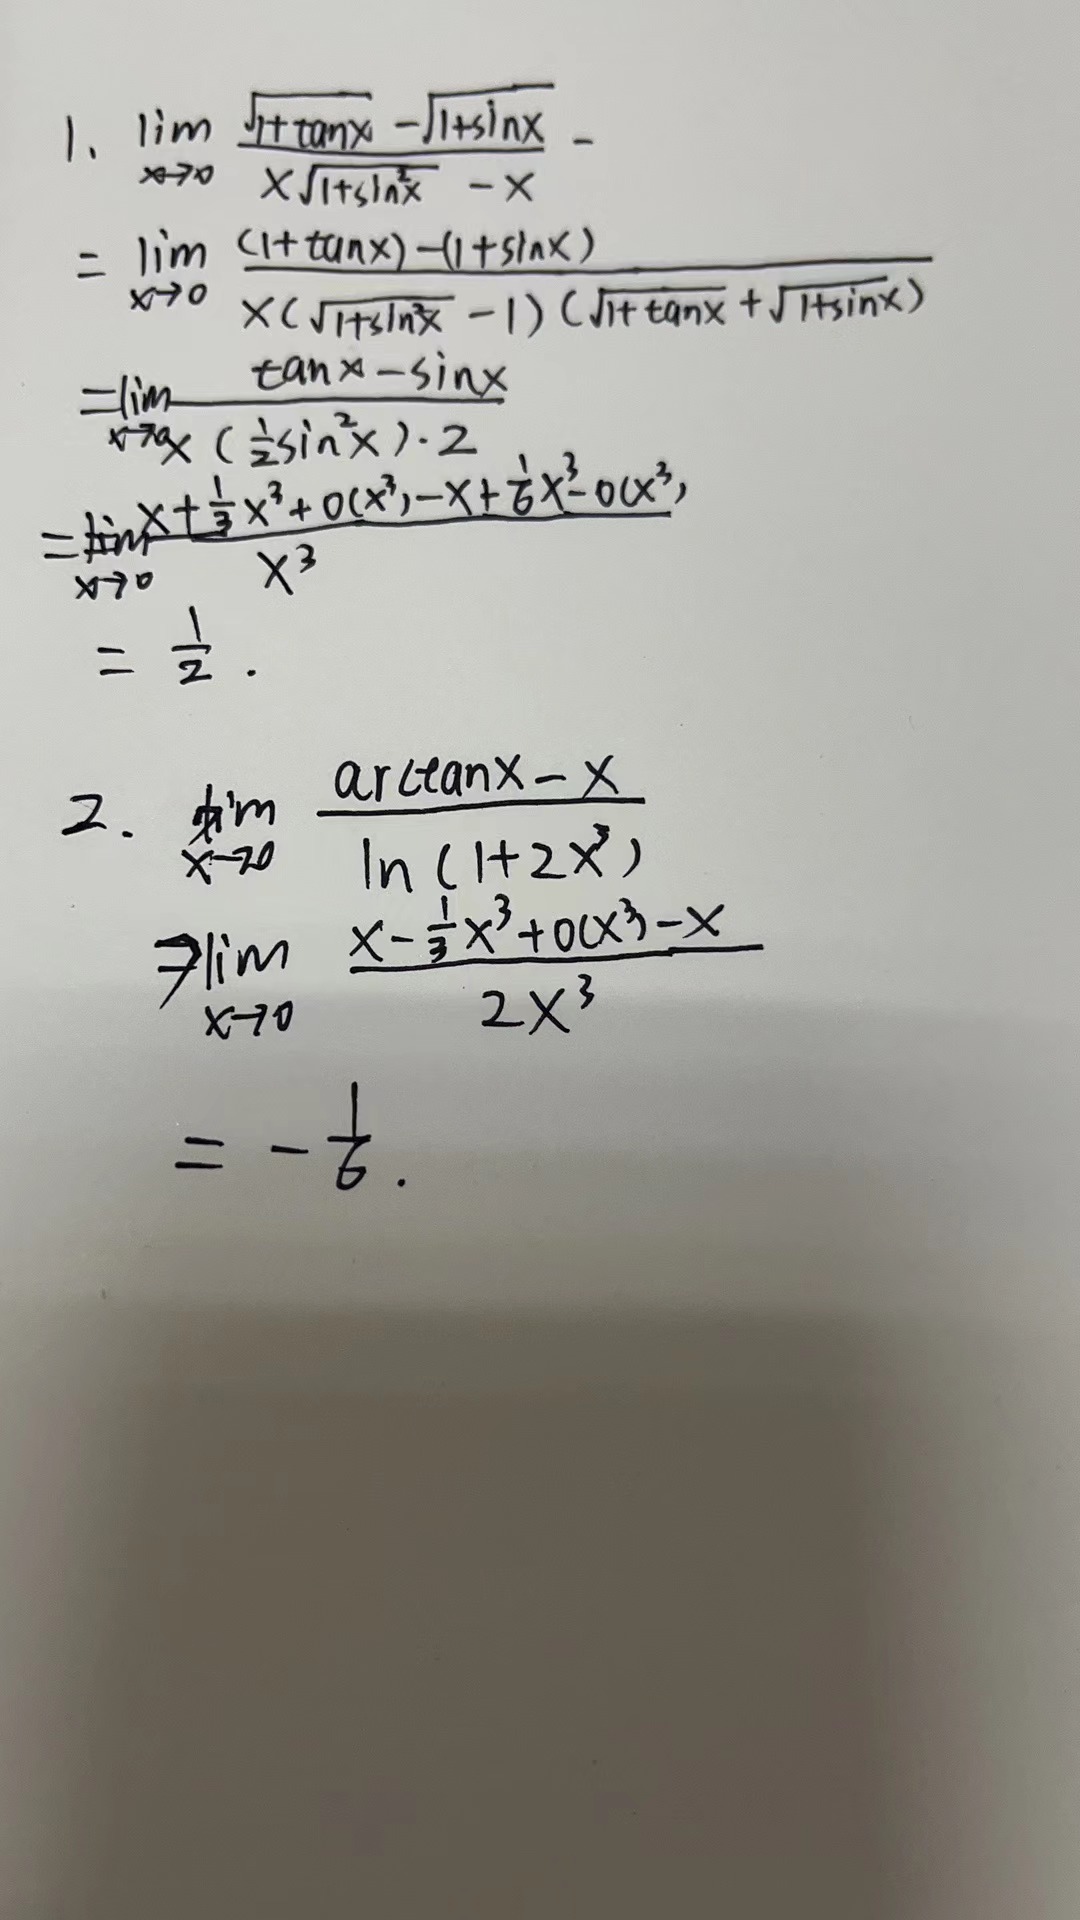 1. lim x→0 (√(1+tanx) - √(1+sinx)) / (x√(1+sin²x) - x) -
= lim x→0 ((1+tanx)-(1+sinx)) / (x(√(1+sin²x) - 1)(√(1+tanx) + √(1+sinx)))
= lim x→0 (tanx - sinx) / (x(½sin²x)·2)
= lim x→0 (x + ⅓x³ + o(x³) - x + ⅙x³ - o(x³)) / x³
= ½.
2. lim x→0 (arctanx - x) / (ln(1+2x³))
= lim x→0 (x - ⅓x³ + o(x³) - x) / (2x³)
= -⅙.